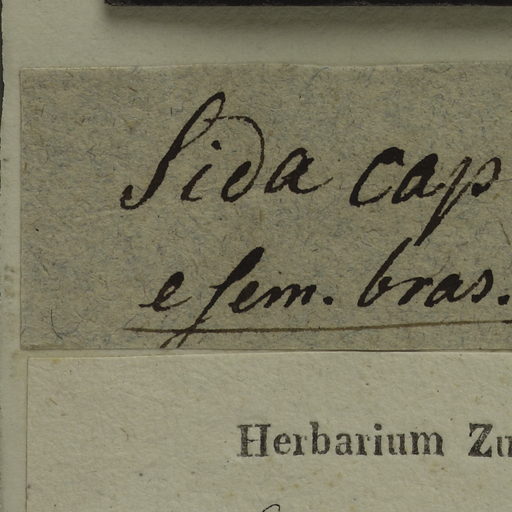 Sida cap
e sem. bras.
Herbarium Zu